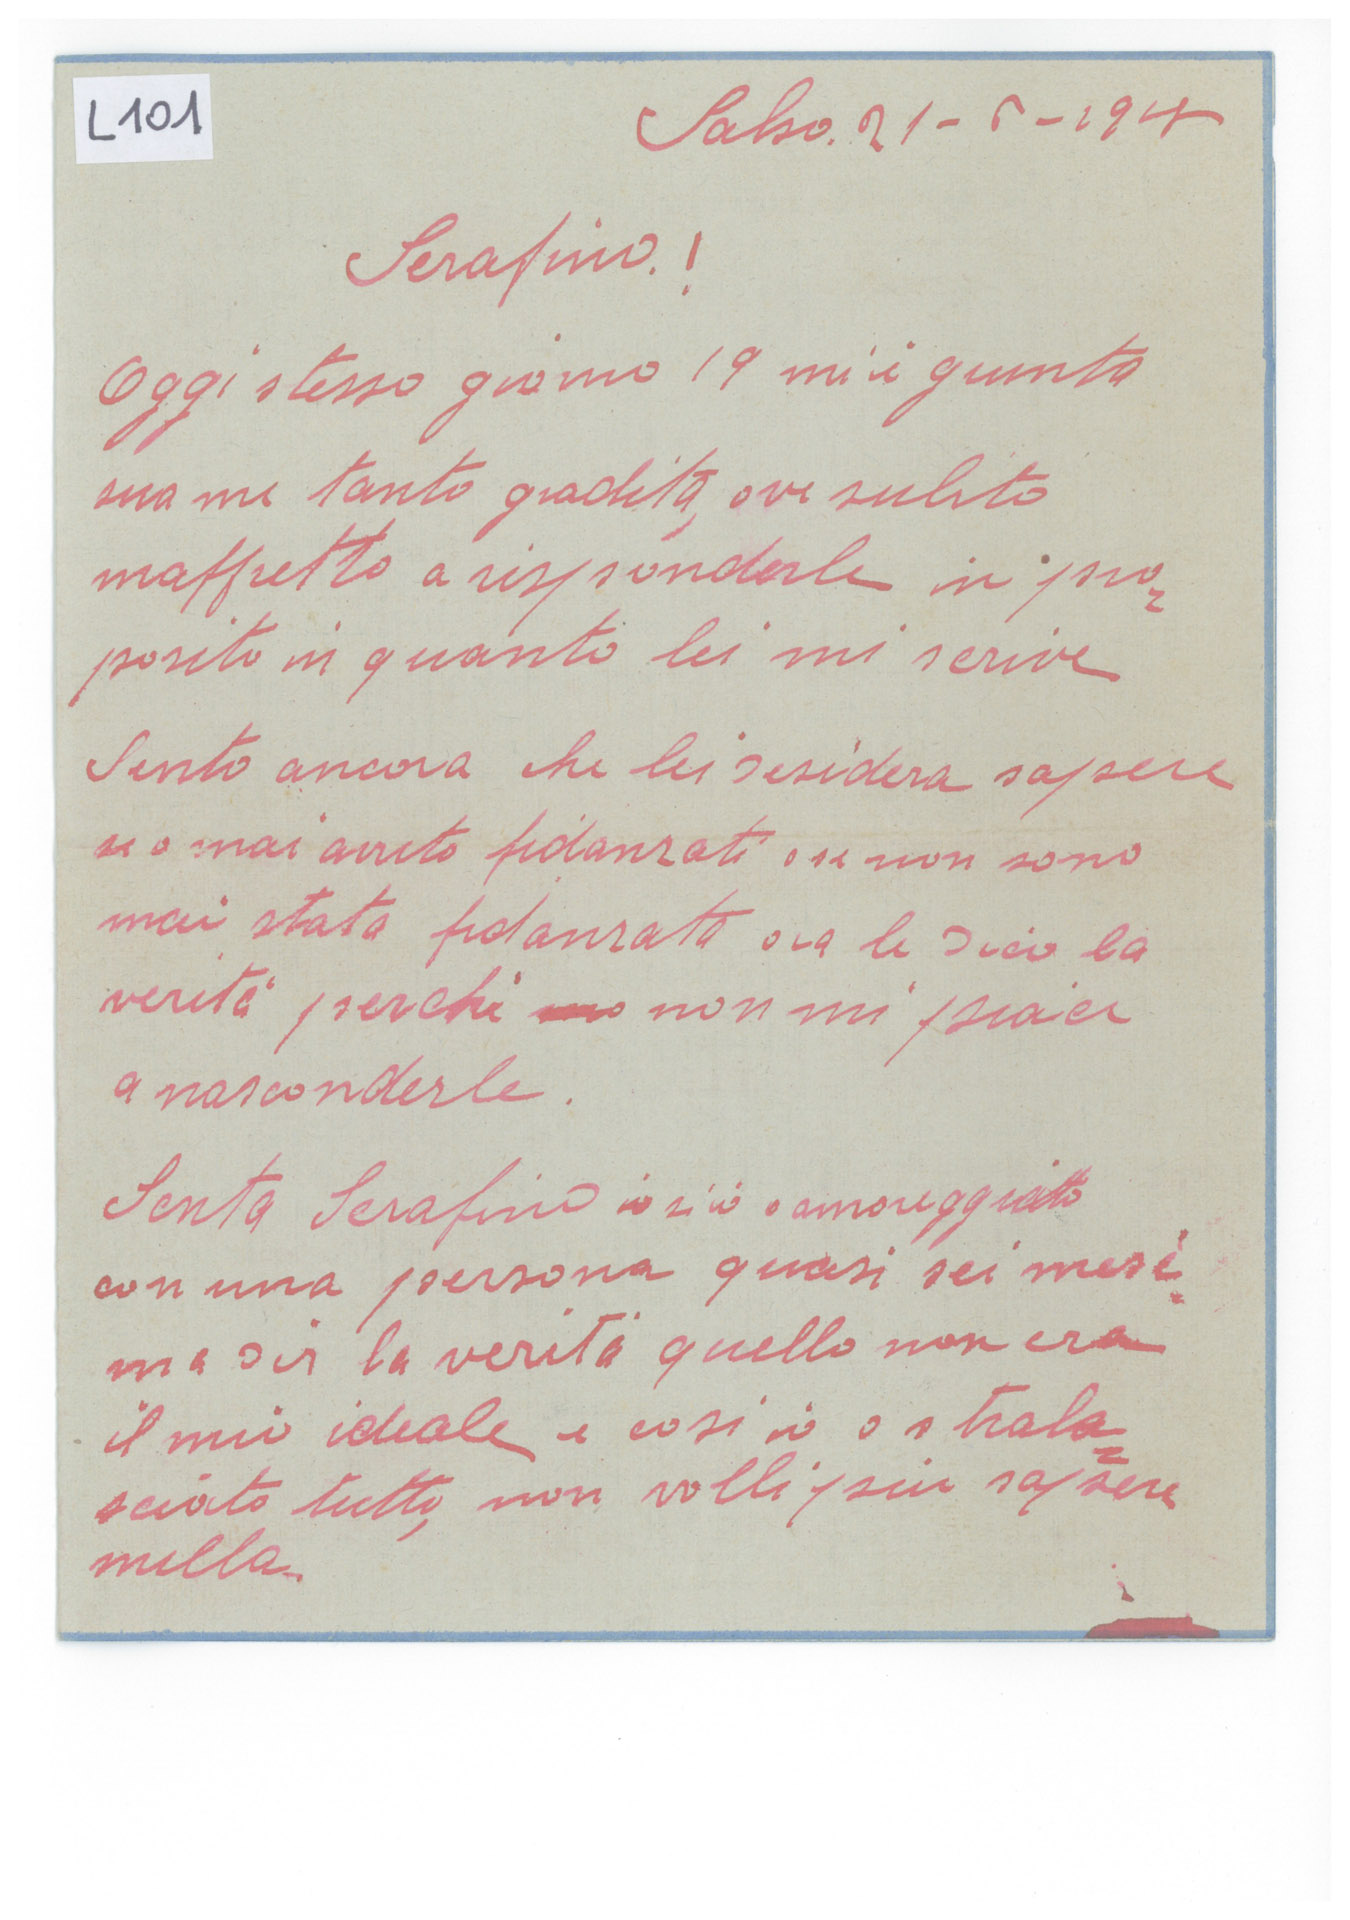 L101
Salso. 21-5-194
Serafino.!
Oggi stesso giorno 19 mi è giunta
sua me tanto gradita, ove subito
maffretto a risponderle in pro=
posito in quanto lei mi scrive
Sento ancora che lei desidera sapere
se o mai avuto fidanzati o se non sono
mai stata fidanzata ora le dico la
verità perchè non mi piace
a nasconderle.
Senta Serafino io si o amoreggiatto
con una persona quasi sei mesi
ma dir la verità quello non era
il mio ideale e cosi io o strala=
sciato tutto, non volli piu sapere
nulla.